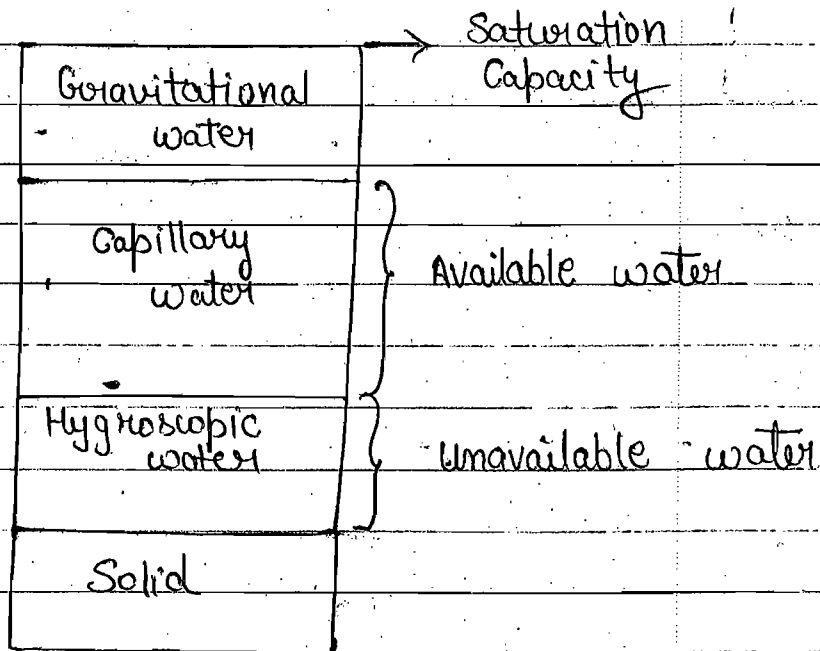 Saturation
Capacity
Gravitational
water
Capillary
water
Available water
Hygroscopic
water
Unavailable water
Solid